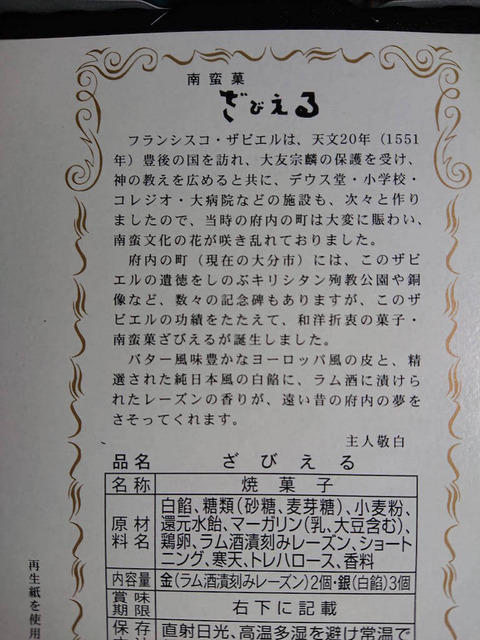 南蛮菓
ざびえる
フランシスコ・ザビエルは、天文20年（1551
年）豊後の国を訪れ、大友宗麟の保護を受け、
神の教えを広めると共に、デウス堂・小学校・
コレジオ・大病院などの施設も、次々と作り
ましたので、当時の府内の町は大変に賑わい、
南蛮文化の花が咲き乱れておりました。
府内の町（現在の大分市）には、このザビ
エルの遺徳をしのぶキリシタン殉教公園や銅
像など、数々の記念碑もありますが、このザ
ビエルの功績をたたえて、和洋折衷の菓子・
南蛮菓ざびえるが誕生しました。
バター風味豊かなヨーロッパ風の皮と、精
選された純日本風の白餡に、ラム酒に漬けら
れたレーズンの香りが、遠い昔の府内の夢を
さそってくれます。
主人敬白
品名 ざびえる
名称 焼菓子
原材料名 白餡、糖類（砂糖、麦芽糖）、小麦粉、
還元水飴、マーガリン（乳、大豆含む）、
鶏卵、ラム酒漬刻みレーズン、ショート
ニング、寒天、トレハロース、香料
内容量 金（ラム酒漬刻みレーズン）2個・銀（白餡）3個
賞味期限 右下に記載
保存 直射日光、高温多湿を避け常温で
再生紙を使用